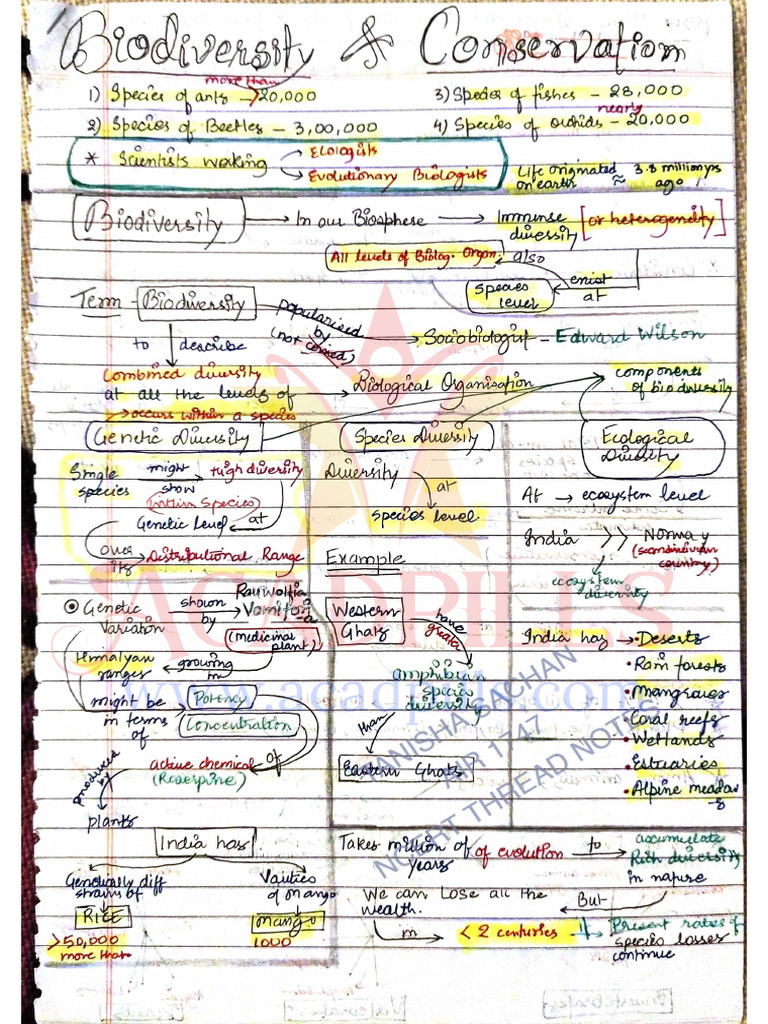 Biodiversity & Conservation
1) Species of ants → more than 20,000
3) Species of fishes – 28,000
2) Species of Beetles – 3,00,000
4) Species of orchids – nearly 20,000
* Scientists working → Ecologists
→ Evolutionary Biologists
Life originated on earth ≈ 3.8 million yrs ago
Biodiversity → In our Biosphere → Immense diversity [or heterogeneity]
All levels of Biolog. Organ. also
Species level exist at
Term – Biodiversity popularised by (not coined) → Sociobiologist – Edward Wilson
to describe
Combined diversity at all the levels of → Biological Organisation
components of biodiversity
→ occurs within a species
Genetic Diversity
Species Diversity
Ecological Diversity
Single species might show High diversity
(Within Species)
Genetic level at
over its Distributional Range
Diversity at species level
At → ecosystem level
India >> Norway (scandinavian country)
ecosystem diversity
Genetic Variation shown by → Rauwolfia Vomitoria
(medicinal plant)
Himalyan ranges growing in
might be in terms of
Potency
Concentration
of active chemical (Reserpine)
produced by plants
Example
Western Ghats have greater
amphibian species diversity
than
Eastern Ghats
India has → • Deserts
• Rain forests
• Mangroves
• Coral reefs
• Wetlands
• Estuaries
• Alpine meadows
India has
Genetically diff strains of
RICE
>50,000
more than
Vaities of mango
mango
1000
Takes million of years of evolution to accumulate Rich diversity in nature
But
We can Lose all the wealth.
in < 2 centuries
If Present rates of species losses continue
ACADPILLS
www.acadpills.com
TANISHA SACHAN
AIR 1747
NCERT THREAD NOTES